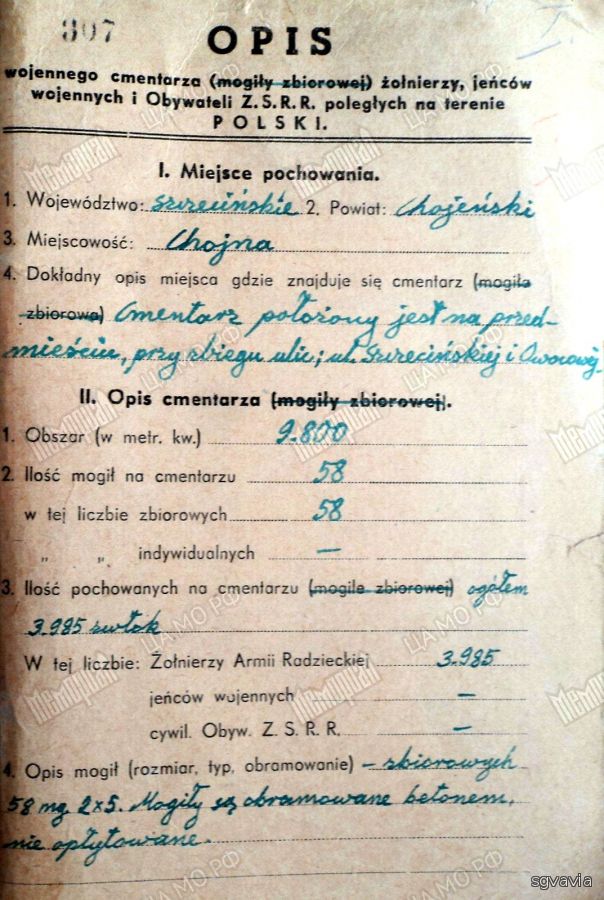 307
OPIS
wojennego cmentarza (mogiły zbiorowej) żołnierzy, jeńców
wojennych i Obywateli Z.S.R.R. poległych na terenie
POLSKI.
I. Miejsce pochowania.
1. Województwo: Szczecińskie 2. Powiat: Chojeński
3. Miejscowość: Chojna
4. Dokładny opis miejsca gdzie znajduje się cmentarz (mogiła
zbiorowa) Cmentarz położony jest na przed-
mieściu, przy zbiegu ulic; ul. Szczecińskiej i Owocowej.
II. Opis cmentarza (mogiły zbiorowej).
1. Obszar (w metr. kw.) 9.800
2. Ilość mogił na cmentarzu 58
w tej liczbie zbiorowych 58
„ „ indywidualnych —
3. Ilość pochowanych na cmentarzu (mogile zbiorowej) ogółem
3.985 zwłok
W tej liczbie: Żołnierzy Armii Radzieckiej 3.985
jeńców wojennych —
cywil. Obyw. Z. S. R. R. —
4. Opis mogił (rozmiar, typ, obramowanie) – zbiorowych
58 mg 2x5. Mogiły są obramowane betonem,
nie opłytowane.
Мемориал
ЦАМО РФ
sgvavia